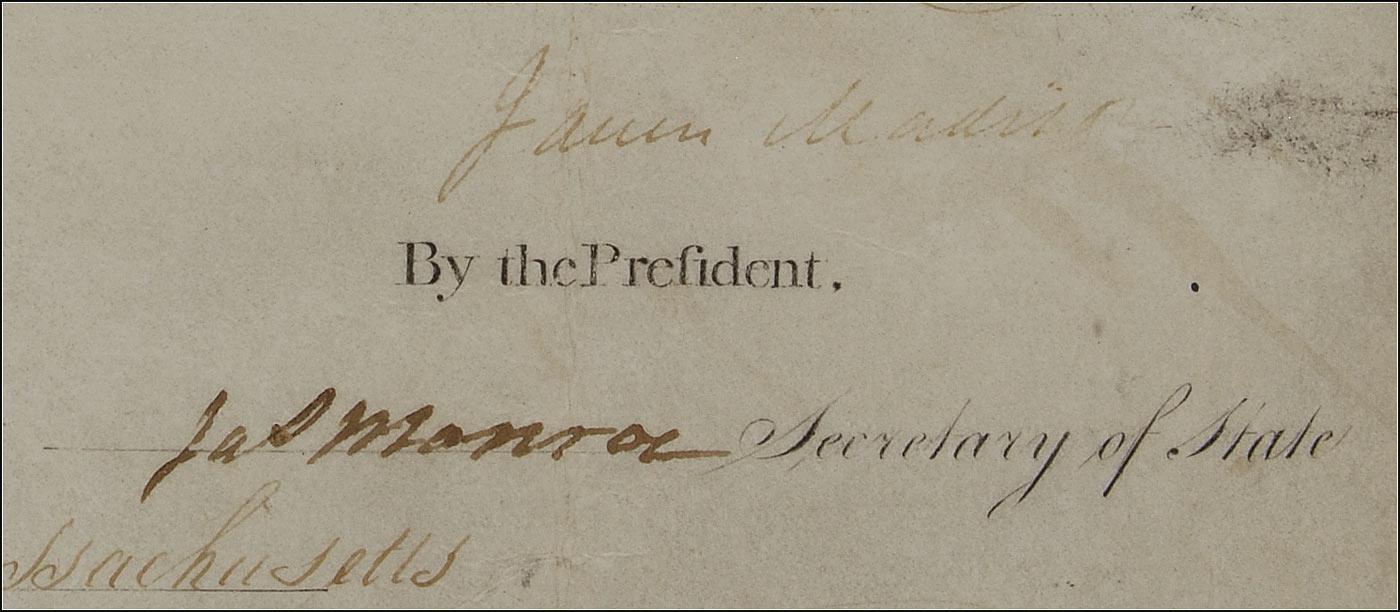 James Madison
By the Preſident,
Jaˢ Monroe Secretary of State
ssachusetts